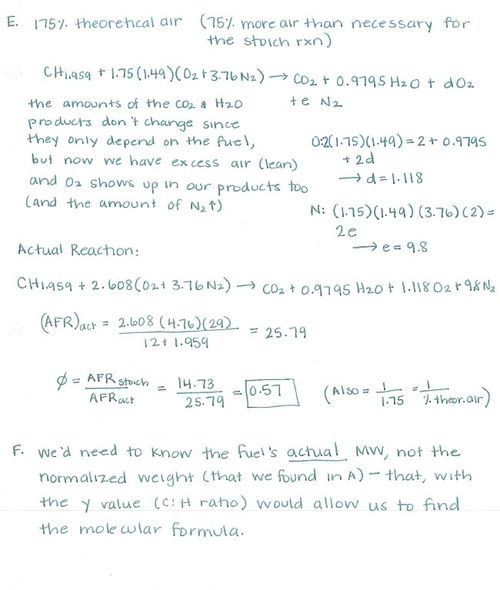 E. 175% theoretical air (75% more air than necessary for
the stoich rxn)
CH1.959 + 1.75(1.49)(O2+3.76N2) → CO2 + 0.9795 H2O + dO2
+ e N2
the amounts of the CO2 & H2O
products don't change since
they only depend on the fuel,
but now we have excess air (lean)
and O2 shows up in our products too
(and the amount of N2↑)
O:2(1.75)(1.49) = 2 + 0.9795
+ 2d
→ d = 1.118
N: (1.75)(1.49)(3.76)(2) =
2e
→ e = 9.8
Actual Reaction:
CH1.959 + 2.608(O2+ 3.76N2) → CO2 + 0.9795 H2O + 1.118 O2 + 9.8 N2
(AFR)act = 2.608 (4.76)(29) / 12 + 1.959 = 25.79
Ø = AFR stoich / AFRact = 14.73 / 25.79 = 0.57 (Also = 1 / 1.75 = 1 / % theor.air)
F. We'd need to know the fuel's actual MW, not the
normalized weight (that we found in A) – that, with
the y value (C:H ratio) would allow us to find
the molecular formula.